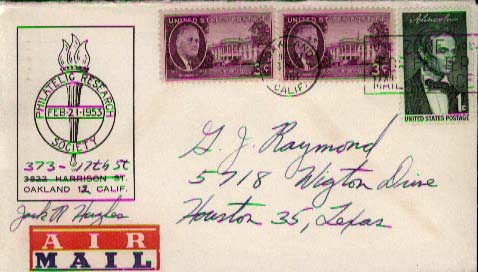 UNITED STATES POSTAGE
UNITED STATES POSTAGE
Lincoln
CALIF.
MAIL
3¢
1c
UNITED STATES POSTAGE
PHILATELIC RESEARCH
FEB-21-1953
SOCIETY
373 - 17th St
3833 HARRISON ST.
OAKLAND 12 CALIF.
Jack R Hughes
AIR
MAIL
G. J. Raymond
5718 Wigton Drive
Houston 35, Texas